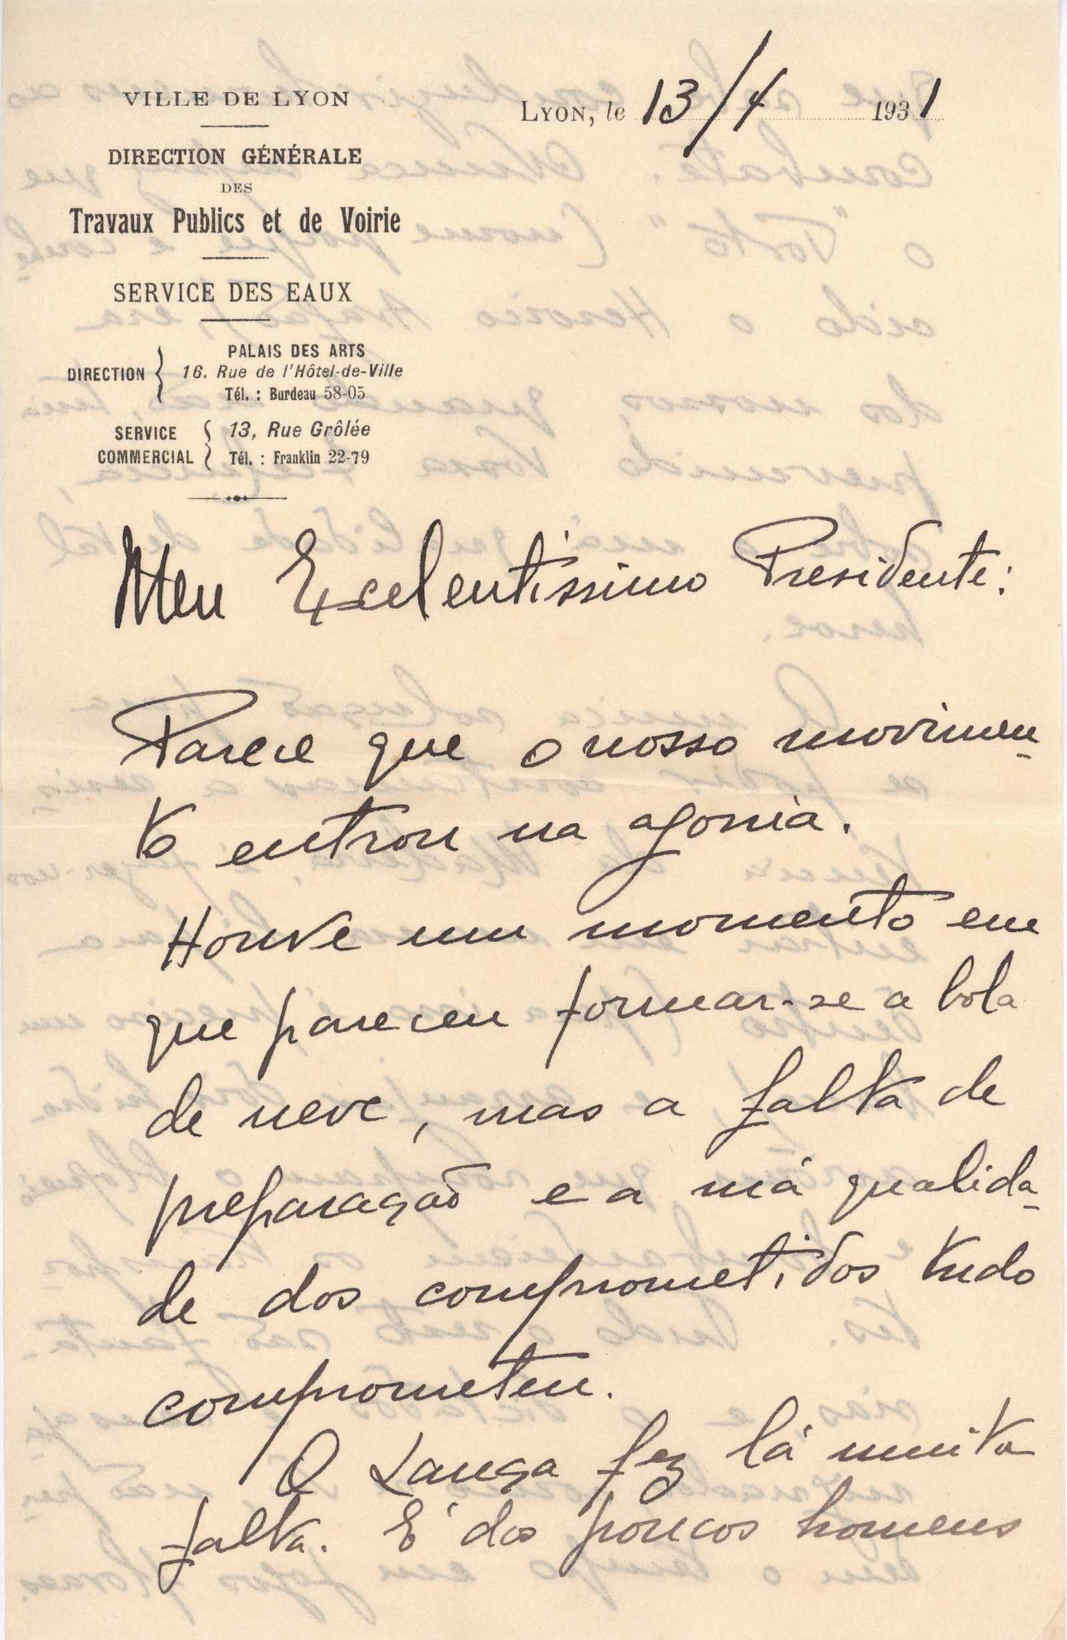 VILLE DE LYON
DIRECTION GÉNÉRALE
DES
Travaux Publics et de Voirie
SERVICE DES EAUX
DIRECTION { PALAIS DES ARTS
16. Rue de l'Hôtel-de-Ville
Tél. : Burdeau 58-05
SERVICE COMMERCIAL { 13, Rue Grôlée
Tél. : Franklin 22-79
LYON, le 13/4 1931
Meu Excelentissimo Presidente:
Parece que o nosso movimen-
to entrou na agonia.
Houve um momento em
que pareceu formar-se a bola
de neve, mas a falta de
preparação e a má qualida-
de dos comprometidos tudo
comprometeu.
O Lança fez lá muita
falta. É dos poucos homens